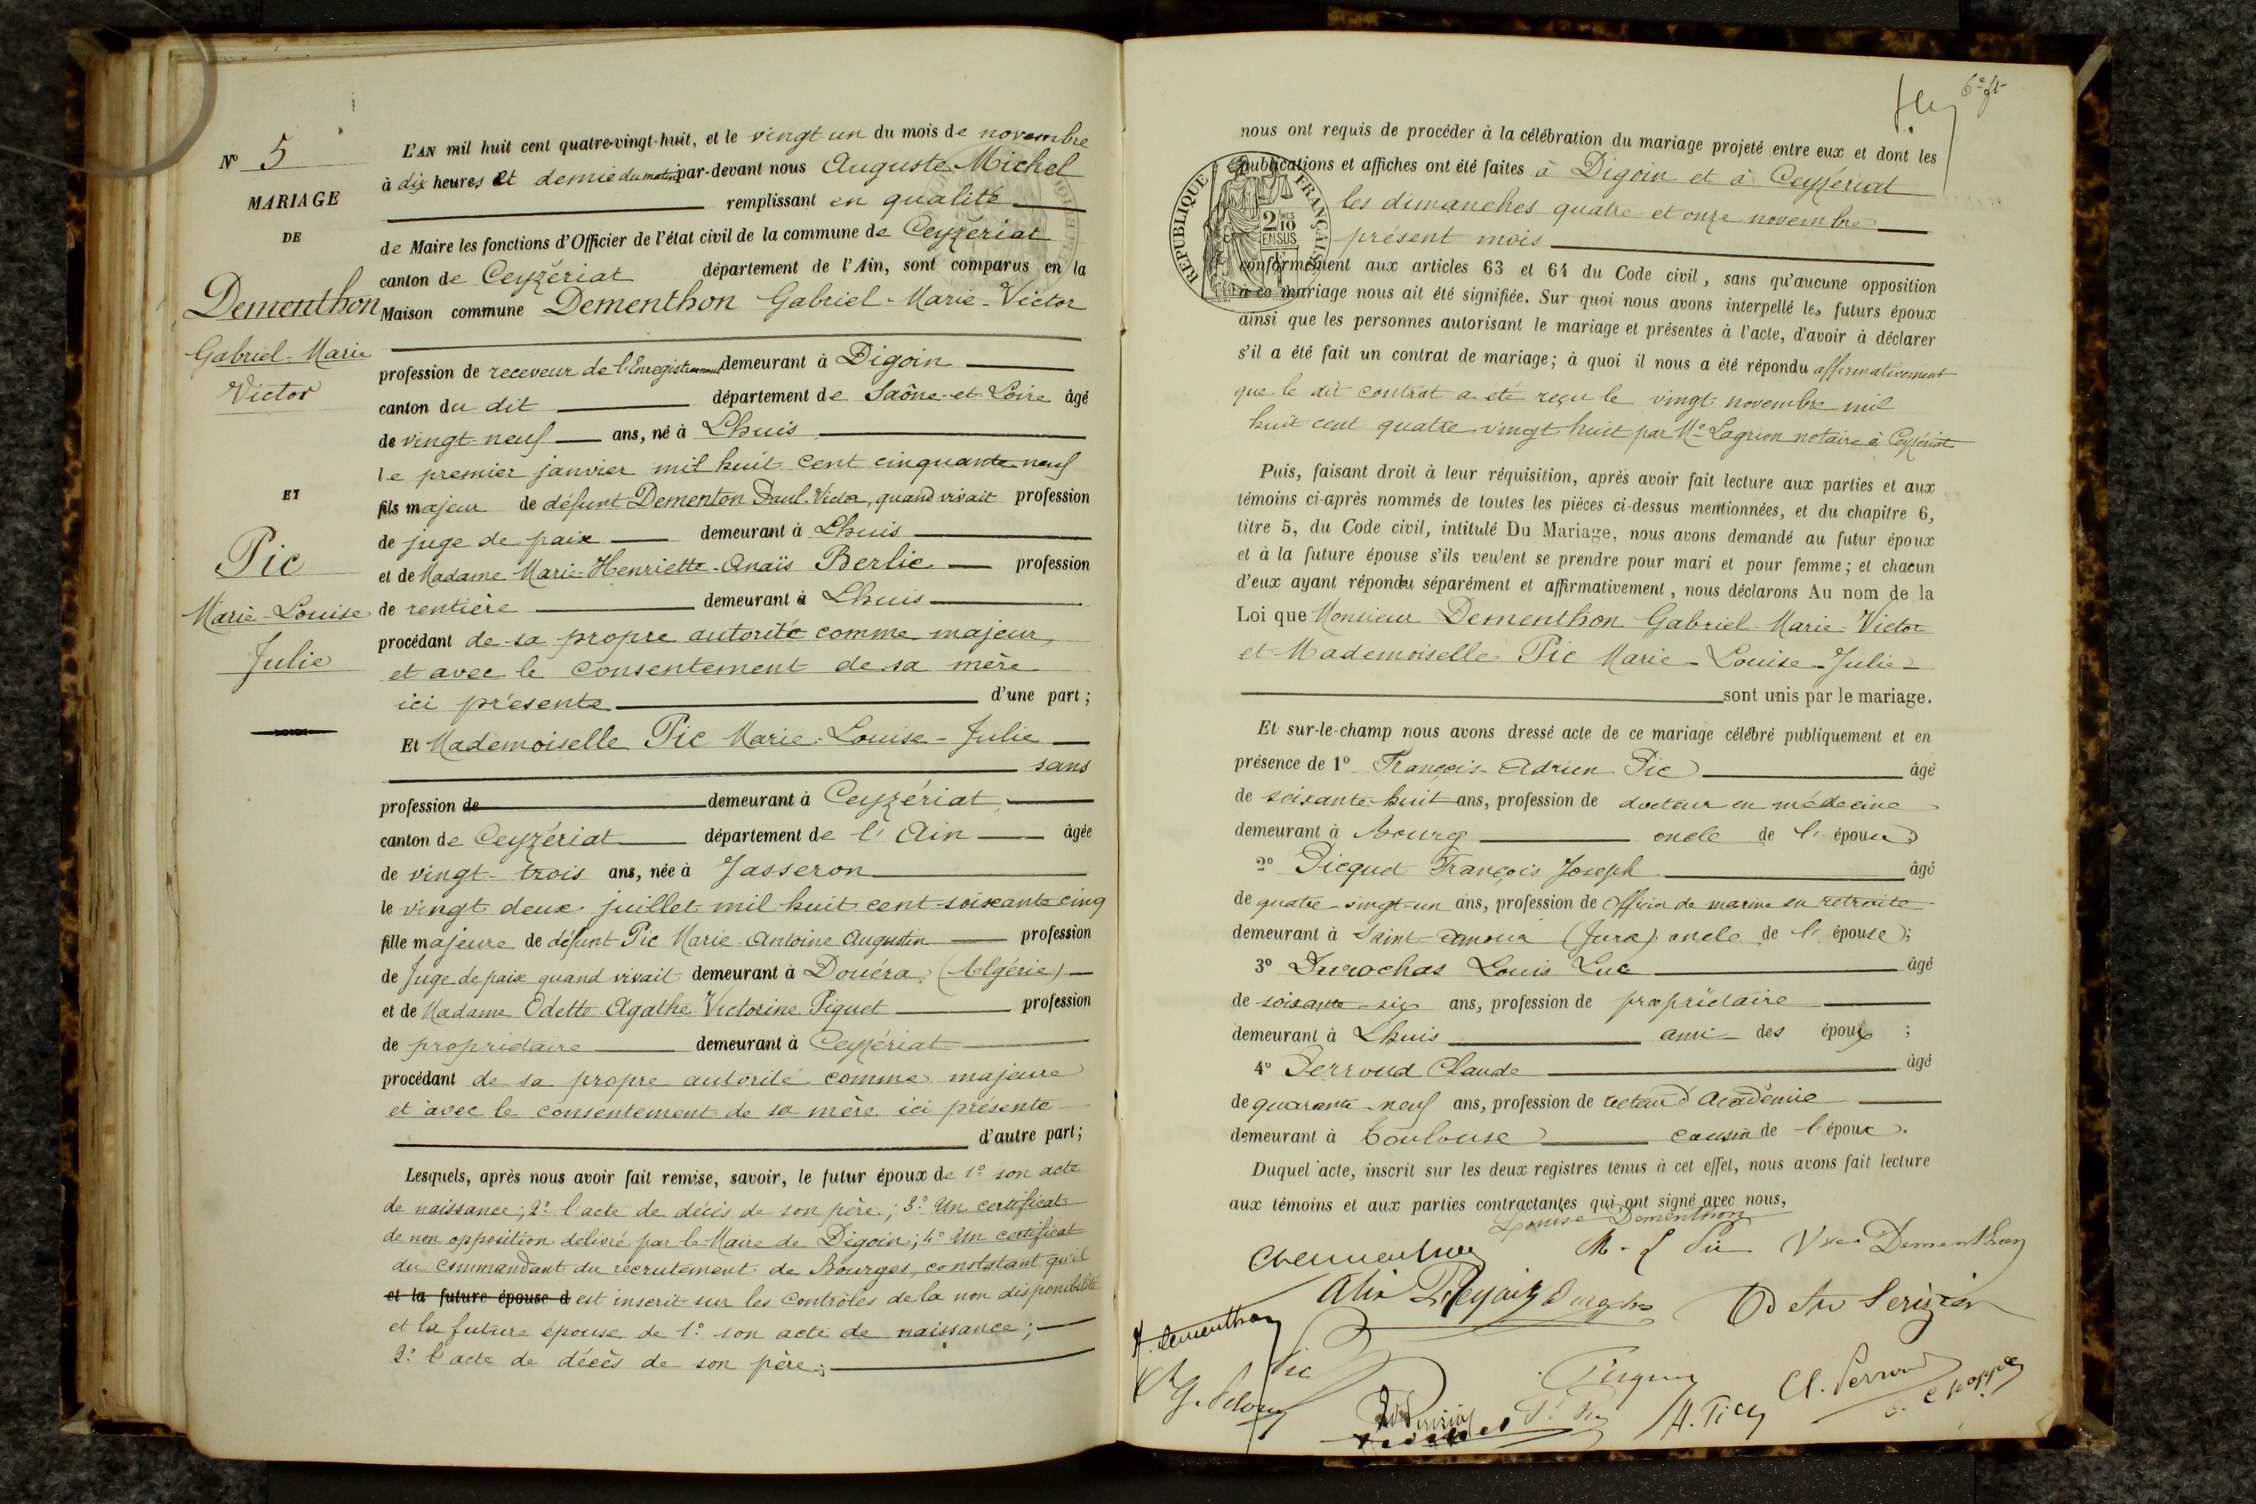 N° 5
MARIAGE
DE
Dementhon
Gabriel-Marie
Victor
ET
Pic
Marie-Louise
Julie
L'AN mil huit cent quatre-vingt-huit, et le vingt-un du mois de novembre
à dix heures et demie du matin par-devant nous Auguste Michel
remplissant en qualité
de Maire les fonctions d'Officier de l'état civil de la commune de Ceyzériat
canton de Ceyzériat département de l'Ain, sont comparus en la
Maison commune Dementhon Gabriel-Marie-Victor
profession de receveur de l'Enregistrement demeurant à Digoin
canton du dit département de Saône-et-Loire âgé
de vingt-neuf ans, né à Lhuis
le premier janvier mil huit cent cinquante neuf
fils majeur de défunt Dementon Paul-Victor, quand vivait profession
de juge de paix demeurant à Lhuis
et de Madame Marie-Henriette-Anaïs Berlie profession
de rentière demeurant à Lhuis
procédant de sa propre autorité comme majeur,
et avec le consentement de sa mère
ici présente d'une part;
Et Mademoiselle Pic Marie-Louise-Julie
sans
profession de demeurant à Ceyzériat
canton de Ceyzériat département de l'Ain âgée
de vingt-trois ans, née à Jasseron
le vingt deux juillet mil huit cent soixante cinq
fille majeure de défunt Pic Marie-Antoine Augustin profession
de Juge de paix quand vivait demeurant à Douéra (Algérie)
et de Madame Odette Agathe Victorine Piquet profession
de propriétaire demeurant à Ceyzériat
procédant de sa propre autorité comme majeure
et avec le consentement de sa mère ici présente
d'autre part;
Lesquels, après nous avoir fait remise, savoir, le futur époux de 1° son acte
de naissance; 2° l'acte de décès de son père; 3° Un certificat
de non opposition délivré par le Maire de Digoin; 4° Un certificat
du commandant du recrutement de Bourges, constatant qu'il
et la future épouse d est inscrit sur les contrôles de la non disponibilité
et la future épouse de 1° son acte de naissance;
2° l'acte de décès de son père;
6e ft
nous ont requis de procéder à la célébration du mariage projeté entre eux et dont les
publications et affiches ont été faites à Digoin et à Ceyzériat
les dimanches quatre et onze novembre
présent mois
RÉPUBLIQUE FRANÇAISE
2/10 EN SUS
conformément aux articles 63 et 64 du Code civil, sans qu'aucune opposition
à ce mariage nous ait été signifiée. Sur quoi nous avons interpellé les futurs époux
ainsi que les personnes autorisant le mariage et présentes à l'acte, d'avoir à déclarer
s'il a été fait un contrat de mariage; à quoi il nous a été répondu affirmativement
que le dit contrat a été reçu le vingt novembre mil
huit cent quatre vingt huit par Me Lagrion notaire à Ceyzériat
Puis, faisant droit à leur réquisition, après avoir fait lecture aux parties et aux
témoins ci-après nommés de toutes les pièces ci-dessus mentionnées, et du chapitre 6,
titre 5, du Code civil, intitulé Du Mariage, nous avons demandé au futur époux
et à la future épouse s'ils veulent se prendre pour mari et pour femme; et chacun
d'eux ayant répondu séparément et affirmativement, nous déclarons Au nom de la
Loi que Monsieur Dementhon Gabriel-Marie-Victor
et Mademoiselle Pic Marie-Louise-Julie
sont unis par le mariage.
Et sur-le-champ nous avons dressé acte de ce mariage célébré publiquement et en
présence de 1° François-Adrien Pic âgé
de soixante-huit ans, profession de docteur en médecine
demeurant à Bourg oncle de l'épouse
2° Picquet François Joseph âgé
de quatre-vingt-un ans, profession de officier de marine en retraite
demeurant à Saint-Amour (Jura) oncle de l'épouse;
3° Durochas Louis Luc âgé
de soixante-six ans, profession de propriétaire
demeurant à Lhuis ami des époux;
4° Perroud Claude âgé
de quarante-neuf ans, profession de recteur d'Académie
demeurant à Toulouse cousin de l'époux.
Duquel acte, inscrit sur les deux registres tenus à cet effet, nous avons fait lecture
aux témoins et aux parties contractantes qui ont signé avec nous,
Louise Dementhon
M-L Pic Vve Dementhon
Pic
H. Pic
Cl. Perroud